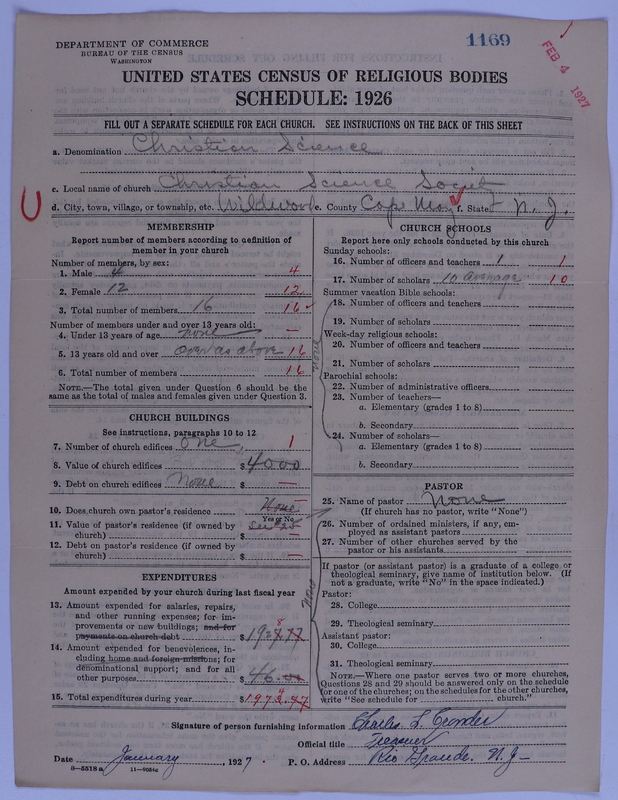 1169
FEB 4 1927
DEPARTMENT OF COMMERCE
BUREAU OF THE CENSUS
WASHINGTON
UNITED STATES CENSUS OF RELIGIOUS BODIES
SCHEDULE: 1926
FILL OUT A SEPARATE SCHEDULE FOR EACH CHURCH. SEE INSTRUCTIONS ON THE BACK OF THIS SHEET
a. Denomination Christian Science
c. Local name of church Christian Science Society
d. City, town, village, or township, etc. Wildwood e. County Cape May f. State N. J.
MEMBERSHIP
Report number of members according to definition of
member in your church
Number of members, by sex:
1. Male 4 4
2. Female 12 12
3. Total number of members 16 16
Number of members under and over 13 years old:
4. Under 13 years of age none —
5. 13 years old and over over as above 16
6. Total number of members 16
NOTE.—The total given under Question 6 should be the
same as the total of males and females given under Question 3.
CHURCH BUILDINGS
See instructions, paragraphs 10 to 12
7. Number of church edifices one 1
8. Value of church edifices $4000
9. Debt on church edifices None $ —
10. Does church own pastor's residence None —
Yes or No
11. Value of pastor's residence (if owned by
church) $ —
12. Debt on pastor's residence (if owned by
church) $ —
EXPENDITURES
Amount expended by your church during last fiscal year
13. Amount expended for salaries, repairs,
and other running expenses; for im-
provements or new buildings; and for
payments on church debt $
14. Amount expended for benevolences, in-
cluding home and foreign missions; for
denominational support; and for all
other purposes $46.00
15. Total expenditures during year $
CHURCH SCHOOLS
Report here only schools conducted by this church
Sunday schools:
16. Number of officers and teachers 1 1
17. Number of scholars 10 average 10
Summer vacation Bible schools:
18. Number of officers and teachers
19. Number of scholars
Week-day religious schools:
20. Number of officers and teachers
21. Number of scholars
none
Parochial schools:
22. Number of administrative officers
23. Number of teachers—
a. Elementary (grades 1 to 8)
b. Secondary
24. Number of scholars—
a. Elementary (grades 1 to 8)
b. Secondary
PASTOR
25. Name of pastor None
(If church has no pastor, write "None")
26. Number of ordained ministers, if any, em-
ployed as assistant pastors
27. Number of other churches served by the
pastor or his assistants
none
If pastor (or assistant pastor) is a graduate of a college or
theological seminary, give name of institution below. (If
not a graduate, write "No" in the space indicated.)
Pastor:
28. College
29. Theological seminary
Assistant pastor:
30. College
31. Theological seminary
NOTE.—Where one pastor serves two or more churches,
Questions 28 and 29 should be answered only on the schedule
for one of the churches; on the schedules for the other churches,
write "See schedule for church."
Signature of person furnishing information Charles L.
Official title Treasurer
Date January, 1927. P. O. Address Rio Grande. N.J—
8—5518a 11—9054c